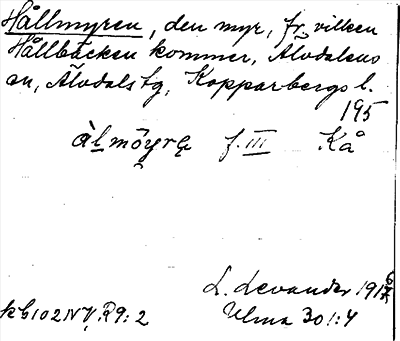 Hållmyren, den myr, fr. vilken
Hållbäcken kommer, Älvdalens
sn, Älvdals tg, Kopparbergs l.
195
àlmöyrę f. III Kå
L. Levander 1916
kbl02NV, R9:2 Ulma 301:4